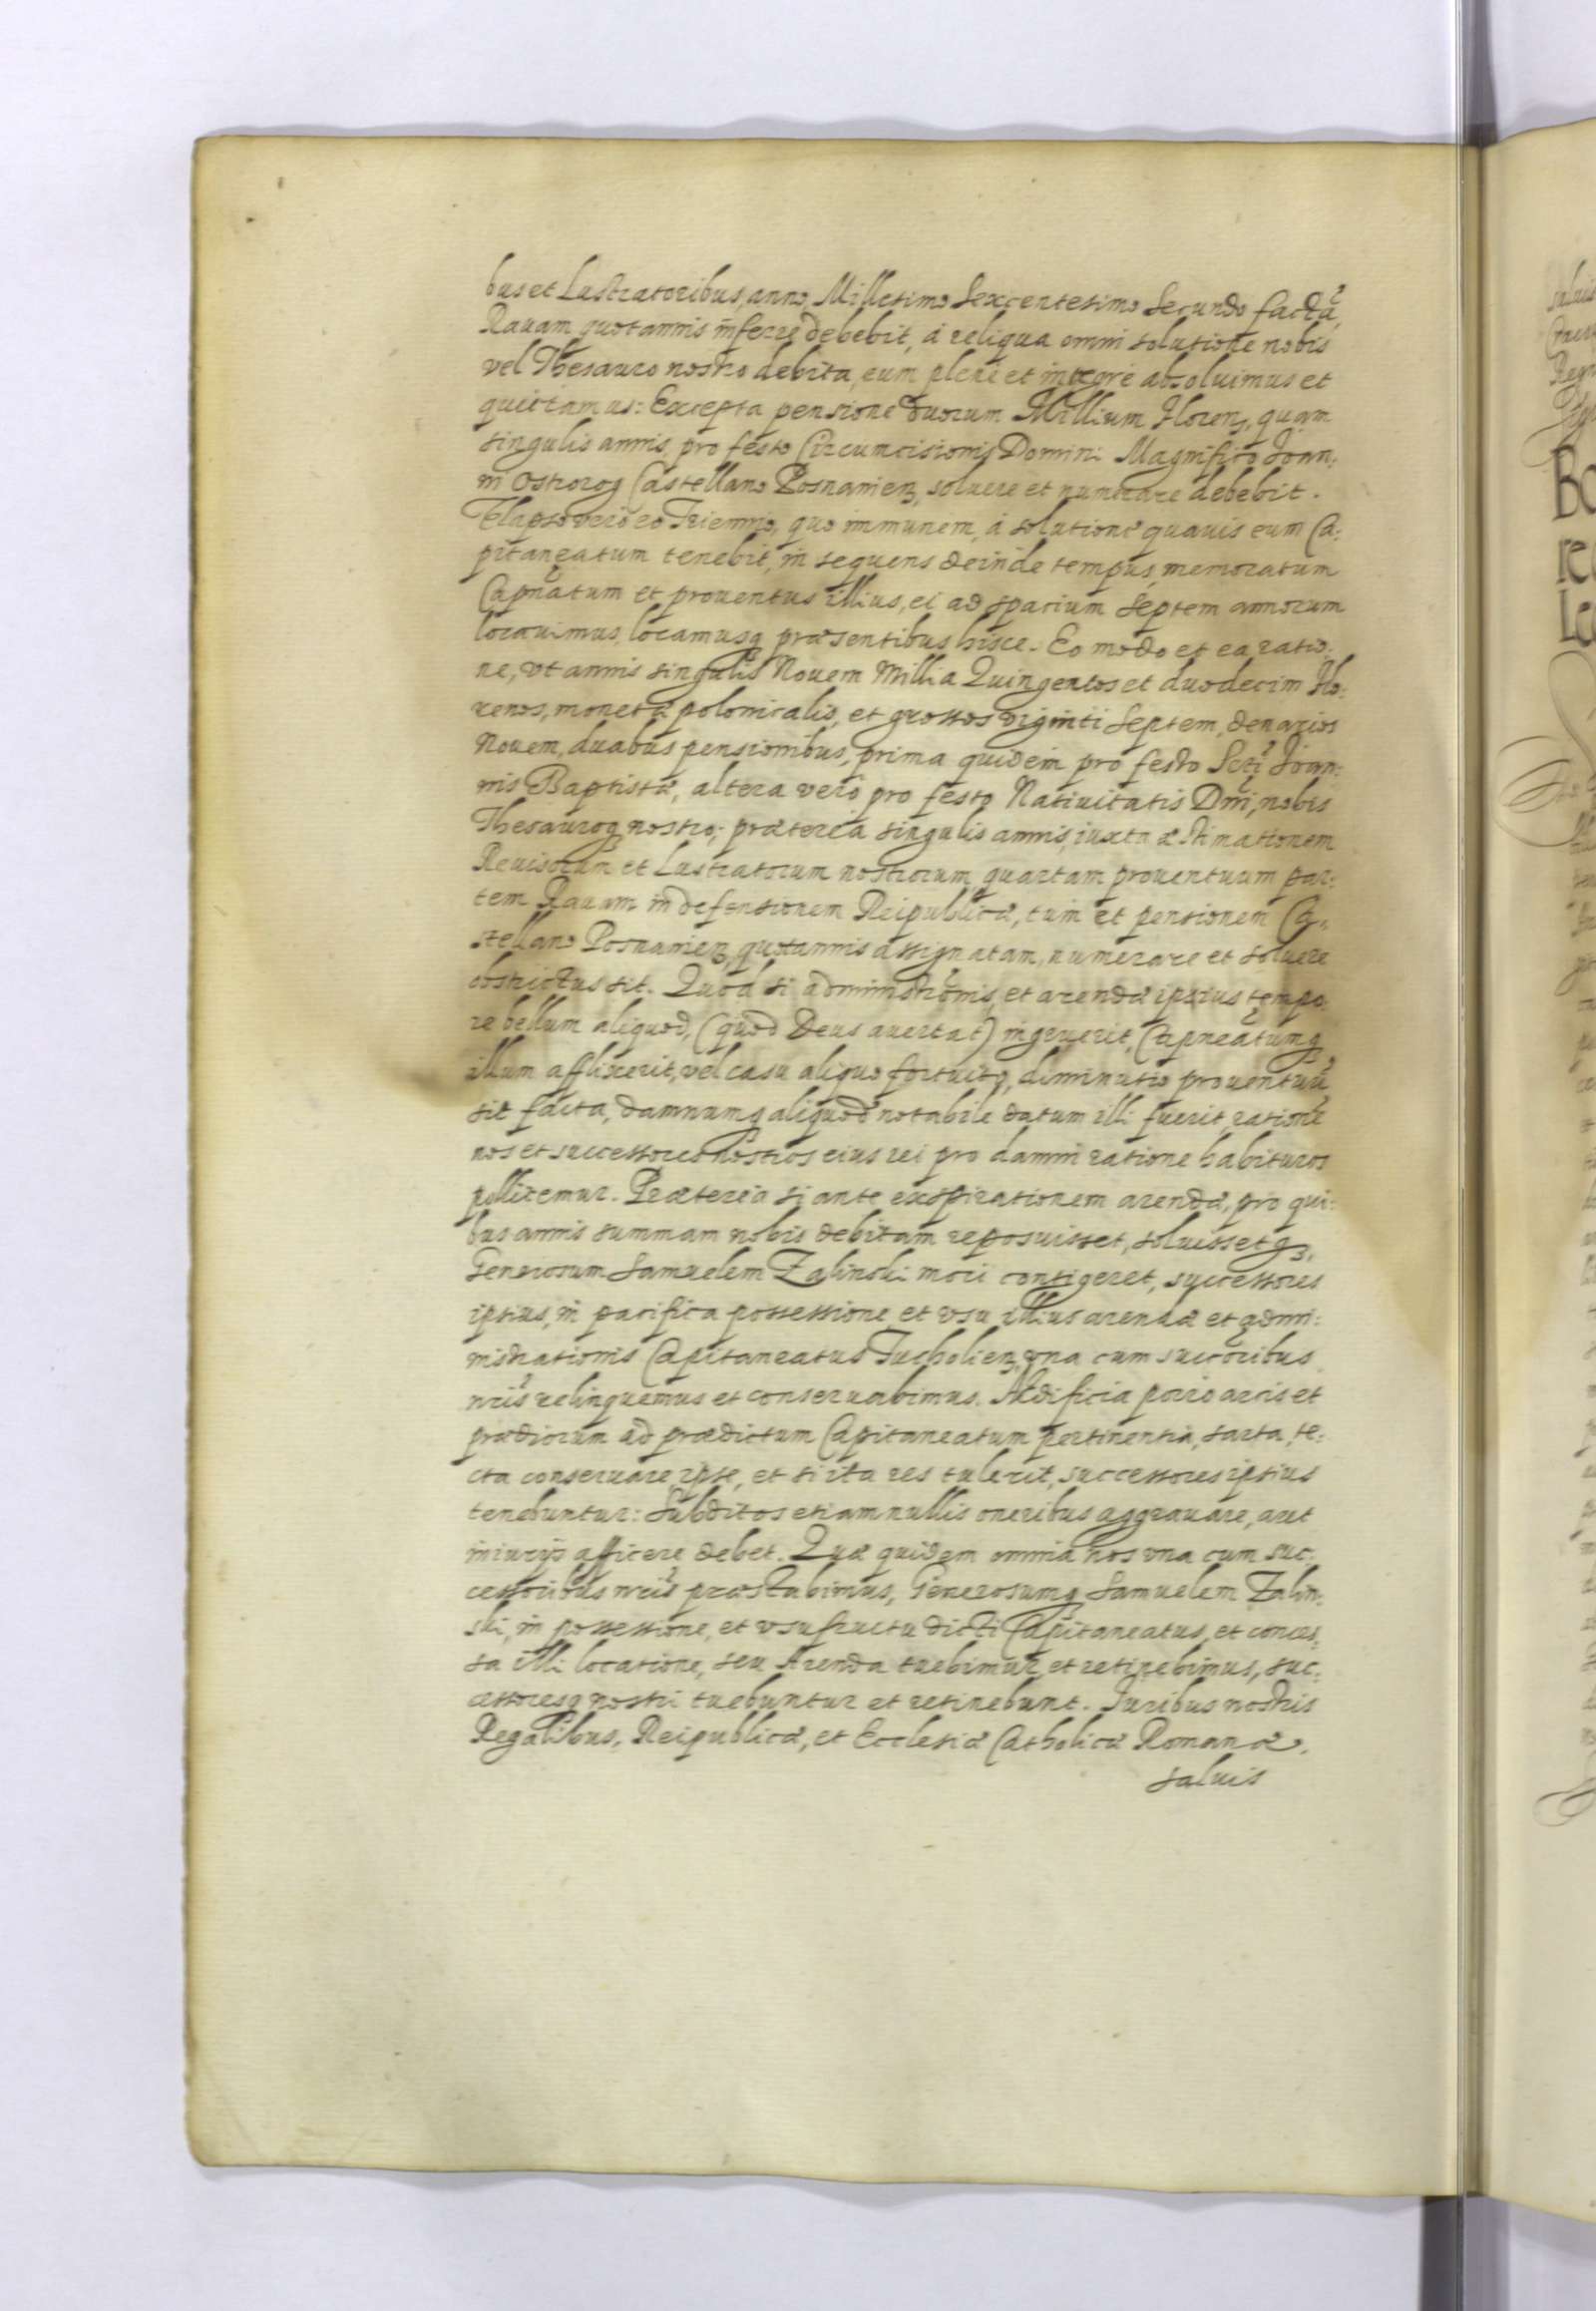 bus et Lustratoribus, anno Millesimo Sexcentesimo Secundo factā,
Rauam quotannis inferre debebit, á reliqua omni solutione nobis
vel Thesauro nostro debita, eum plene et integre absoluimus et
quietamus: Excepta pensione duorum Millium Florenꝫ, quam
singulis annis, pro festo Circumcisionis Domini Magnifico Joan:
ni Ostrorog Castellano Posnanienꝫ, soluere et numerare debebit.
Elapso vero eo Triennio, quo immunem á solutione quauis eum Ca:
pitaneatum tenebit, in sequens deinde tempus, memoratum
Capnatum et prouentus illius, ei ad spacium Septem annorum
locauimus, locamusq præsentibus hisce. Eo modo et ea ratio:
ne, vt annis singulis Nouem Millia Quingentos et duodecim Flo:
renos, monetæ polonicalis, et grossos viginti Septem, denarios
Nouem, duabus pensionibus, prima quidem pro festo Scti Joan:
nis Baptistæ, altera vero pro festo Natiuitatis Dni, nobis
Thesauroq nostro; præterea singulis annis, iuxta æstimationem
Reuisorum et Lustratorum nostrorum, quartam prouentuum par:
tem Rauam in defensionem Reipublicæ, tum et pensionem Ca:
stellano Posnanienꝫ, quotannis assignatam, numerare et soluere
obstrictus sit. Quod si administrõnis, et arendæ ipsius tempo
re bellum aliquod, (quod Deus auertat) ingruerit, Capneatumq
illum afflixerit, vel casu aliquo fortuito, diminutio prouentuū
sit facta, damnumq aliquod notabile datum illi fuerit, ratione
nos et successores nostros eius rei pro damni ratione habituros
pollicemur. Præterea si ante exspirationem arendæ, pro qui:
bus annis summam nobis debitam reposuisset, soluissetqꝫ,
Generosum Samuelem Zalinski mori contigeret, successores
ipsius, in pacifica possessione et vsu illius arendæ et admi:
nistrationis Capitaneatus Tucholienꝫ, vna cum succoribus
nris relinquemus et conseruabimus. Ædificia porro arcis et
prædiorum ad prædictum Capitaneatum pertinentia, sarta, te:
cta conseruare, ipse, et si ita res tulerit, successores ipsius
tenebuntur: Subditos etiam nullis oneribus aggrauare, aut
iniurijs afficere debet. Quæ quidem omnia nos vna cum suc:
cessoribus nris præstabimus, Generosumq Samuelem Zalin:
ski, in possessione, et vsufructu dicti Capitaneatus, et conces:
sa illi locatione, seu Arenda tuebimur et retinebimus, suc:
cessoresq nostri tuebuntur et retinebunt. Juribus nostris
Regalibus, Reipublicæ, et Ecclesiæ Catholicæ Romanæ.
saluis